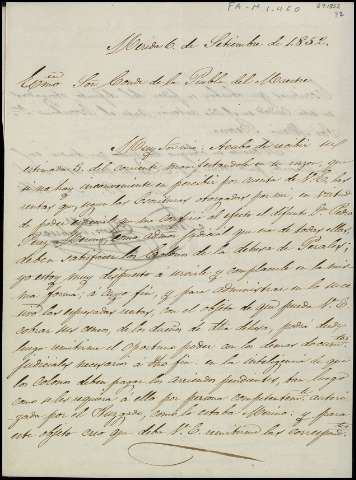 FA-M 1.460
Merida 6. de Setiembre de 1852.
Exmo. Sor. Conde de la Puebla del Maestre
Muy Sor. mio: Acabo de recibir su
estimada del corriente, manifestandole en su razon, que
si no hay inconveniente en percibir por cuenta de V. E. las
rentas que, segun las escrituras otorgadas por mi, en virtud
de poder especial que me confirió al efecto el difunto D. Pedro
como admor. judicial que era de todas ellas,
deben satisfacer los Colonos de la dehesa de Perales,
yo estoy muy dispuesto á servirle y complacerle en la mis-
ma forma; á cuyo fin, y para administrar en lo suce-
sivo las espresadas rentas, con el objeto de que pueda V. E.
cobrar sus censos, de los dueños de dha dehesa, podrá desde
luego remitirme el oportuno poder con los demas docum.tos
judiciales necesarios á dho fin, en la inteligencia de que
los Colonos deben pagar los arriendos pendientes, tan luego
como se les requiera á ello por persona competentem.te autori-
zada por el Juzgado, como lo estaba Merino; y para
este objeto creo que debe V. E. remitirme las correspond.tes